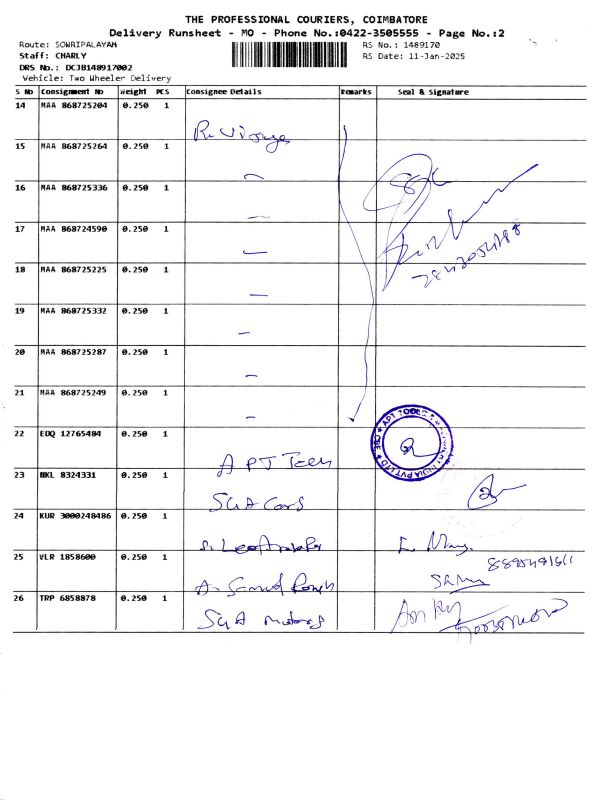 THE PROFESSIONAL COURIERS, COIMBATORE
Delivery Runsheet - MO - Phone No.:0422-3505555 - Page No.:2
Route: SOWRIPALAYAM
RS No.: 1489170
Staff: CHARLY
RS Date: 11-Jan-2025
DRS No.: DCJB148917002
Vehicle: Two Wheeler Delivery
S No Consignment No Weight PCS Consignee Details Remarks Seal & Signature
14 MAA 868725204 0.250 1
15 MAA 868725264 0.250 1
16 MAA 868725336 0.250 1
17 MAA 868724590 0.250 1
18 MAA 868725225 0.250 1
19 MAA 868725332 0.250 1
20 MAA 868725287 0.250 1
21 MAA 868725249 0.250 1
22 EDQ 12765484 0.250 1 APT
23 NKL 8324331 0.250 1 SGA Cars
24 KUR 3000248486 0.250 1
25 VLR 1858600 0.250 1 A.
26 TRP 6858878 0.250 1 SGA Motors